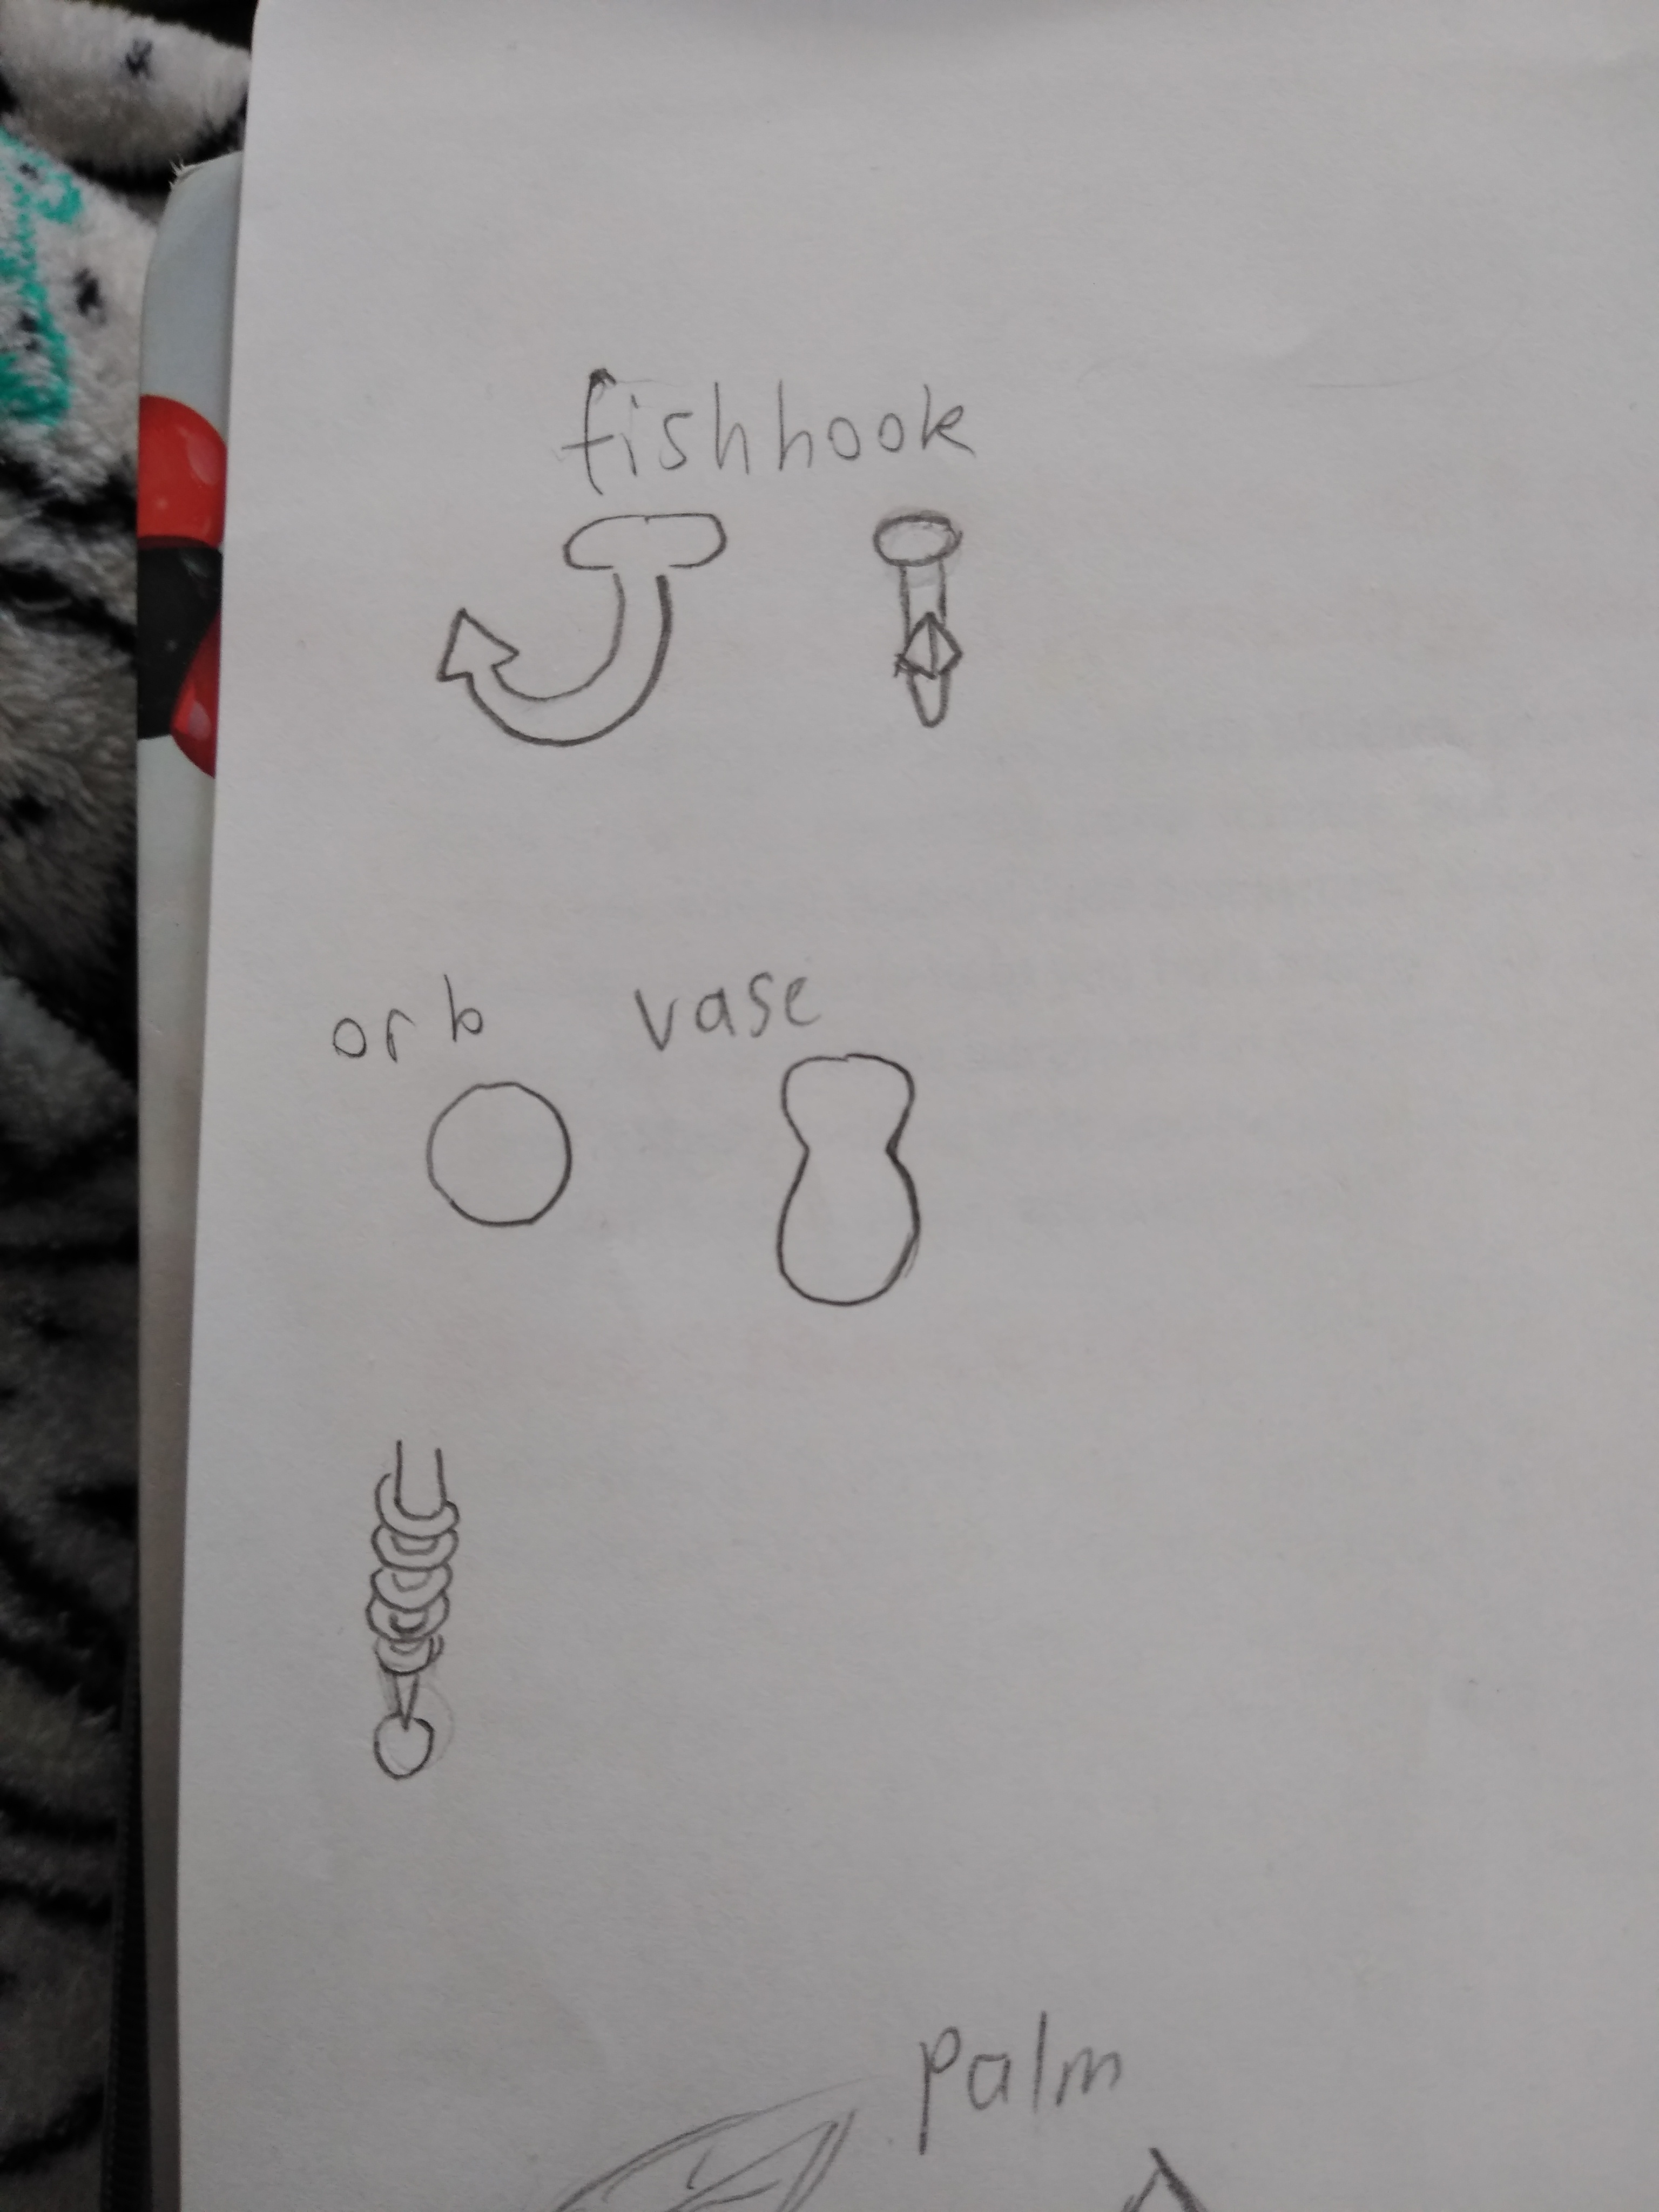 fishhook
orb vase
palm